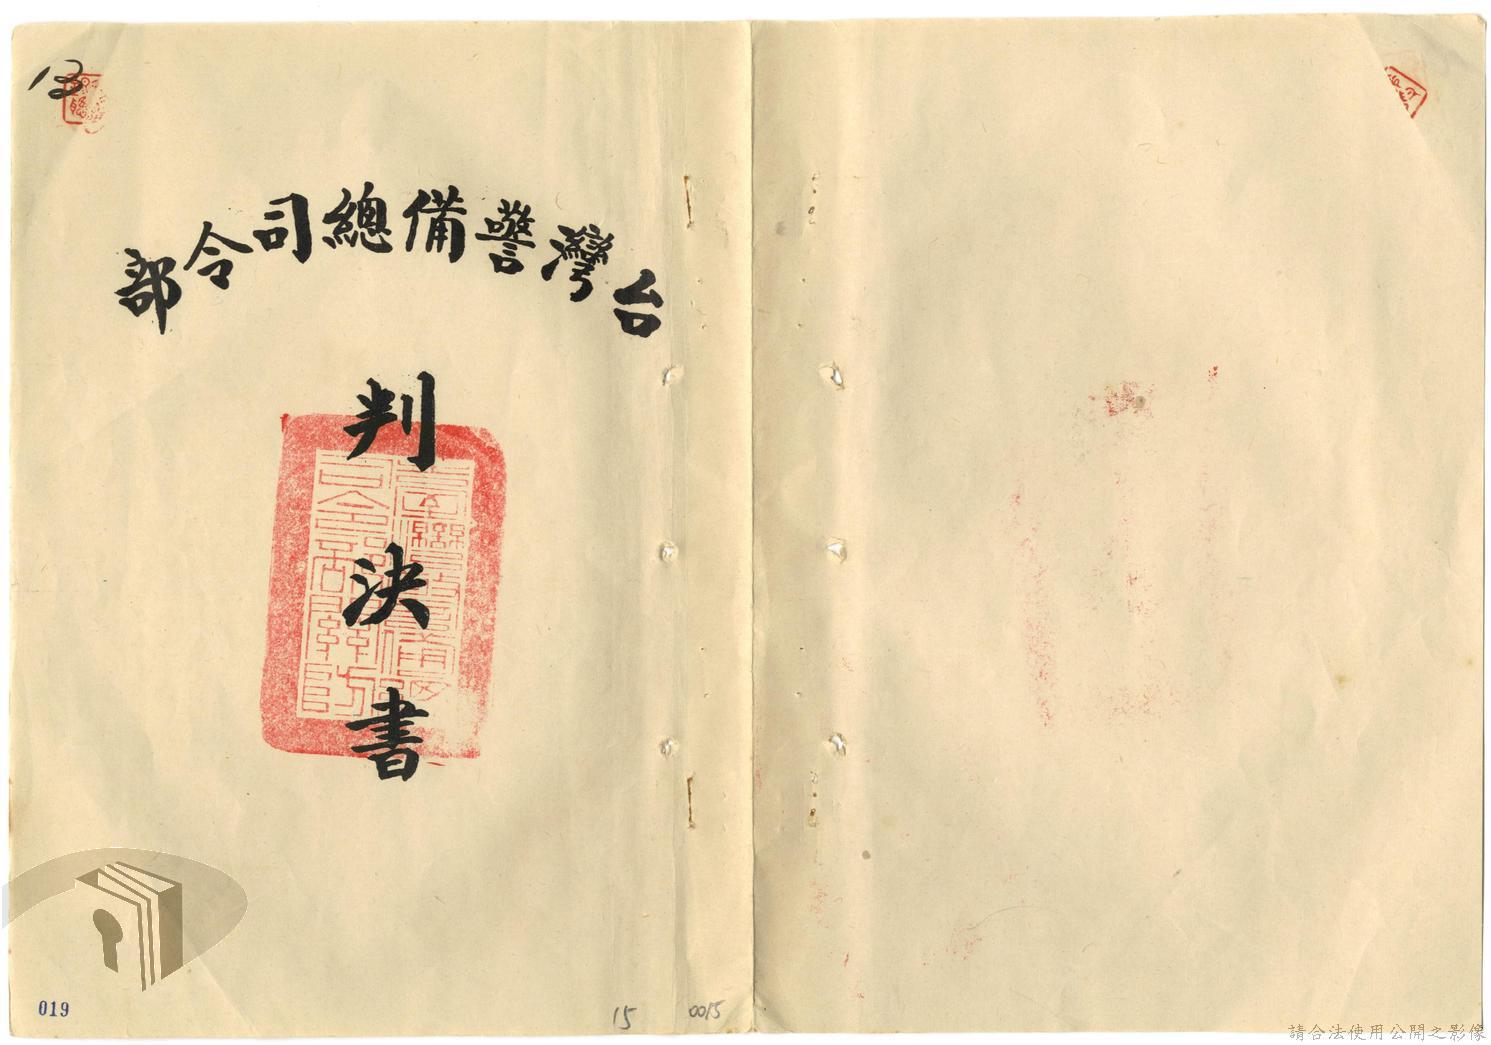 13
台灣警備總司令部
判決書
019
15
0015
請合法使用公開之影像